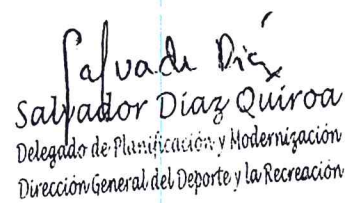 Salvador Díaz
Salvador Díaz Quiroa
Delegado de Planificación y Modernización
Dirección General del Deporte y la Recreación